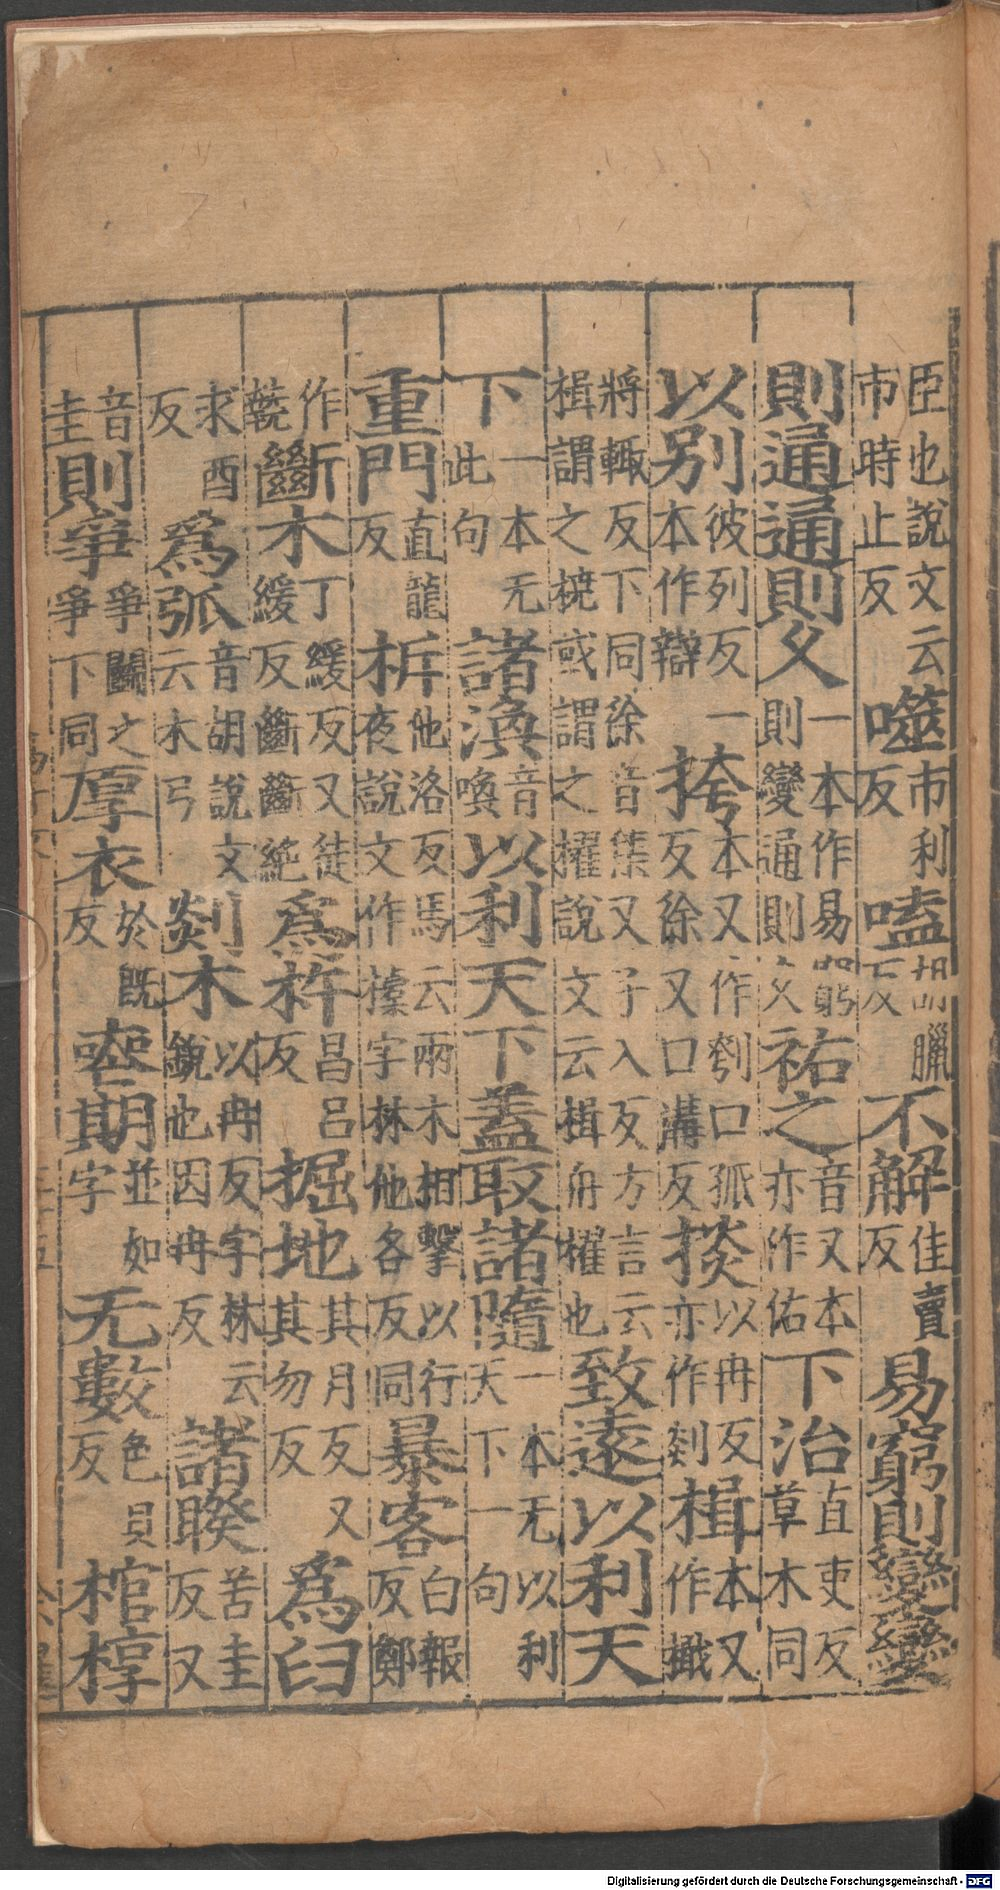 臣也說文云市時止反噬市利反嗑胡臘反不解佳賣反易窮則變變
則通通則久一本作易窮則變通則久祐之音又本亦作佑下治直吏反草木同
以別彼列反一本作辯挎本又作刳口孤反徐又口溝反掞以冉反亦作剡楫本又作檝
將輒反下同徐音集又子入反方言云楫謂之橈或謂之櫂說文云楫舟櫂也致遠以利天
下一本无此句諸渙音喚以利天下蓋取諸隨一本无以利天下一句
重門直龍反柝他洛反馬云兩木相擊以行夜說文作㯓字林他各反同暴客白報反鄭
作虣斷木丁緩反又徒緩反斷斷絶爲杵昌呂反掘地其月反又其勿反爲臼
求酉反爲弧音胡說文云木弓剡木以冉反字林云銳也因冉反諸睽苦圭反又
音圭則爭爭鬭之爭下同厚衣於既反喪期並如字无數色具反棺椁
Digitalisierung gefördert durch die Deutsche Forschungsgemeinschaft - DFG